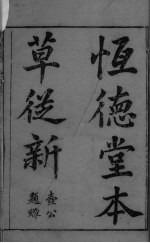 恆德堂本
草從新
壺公
題耑